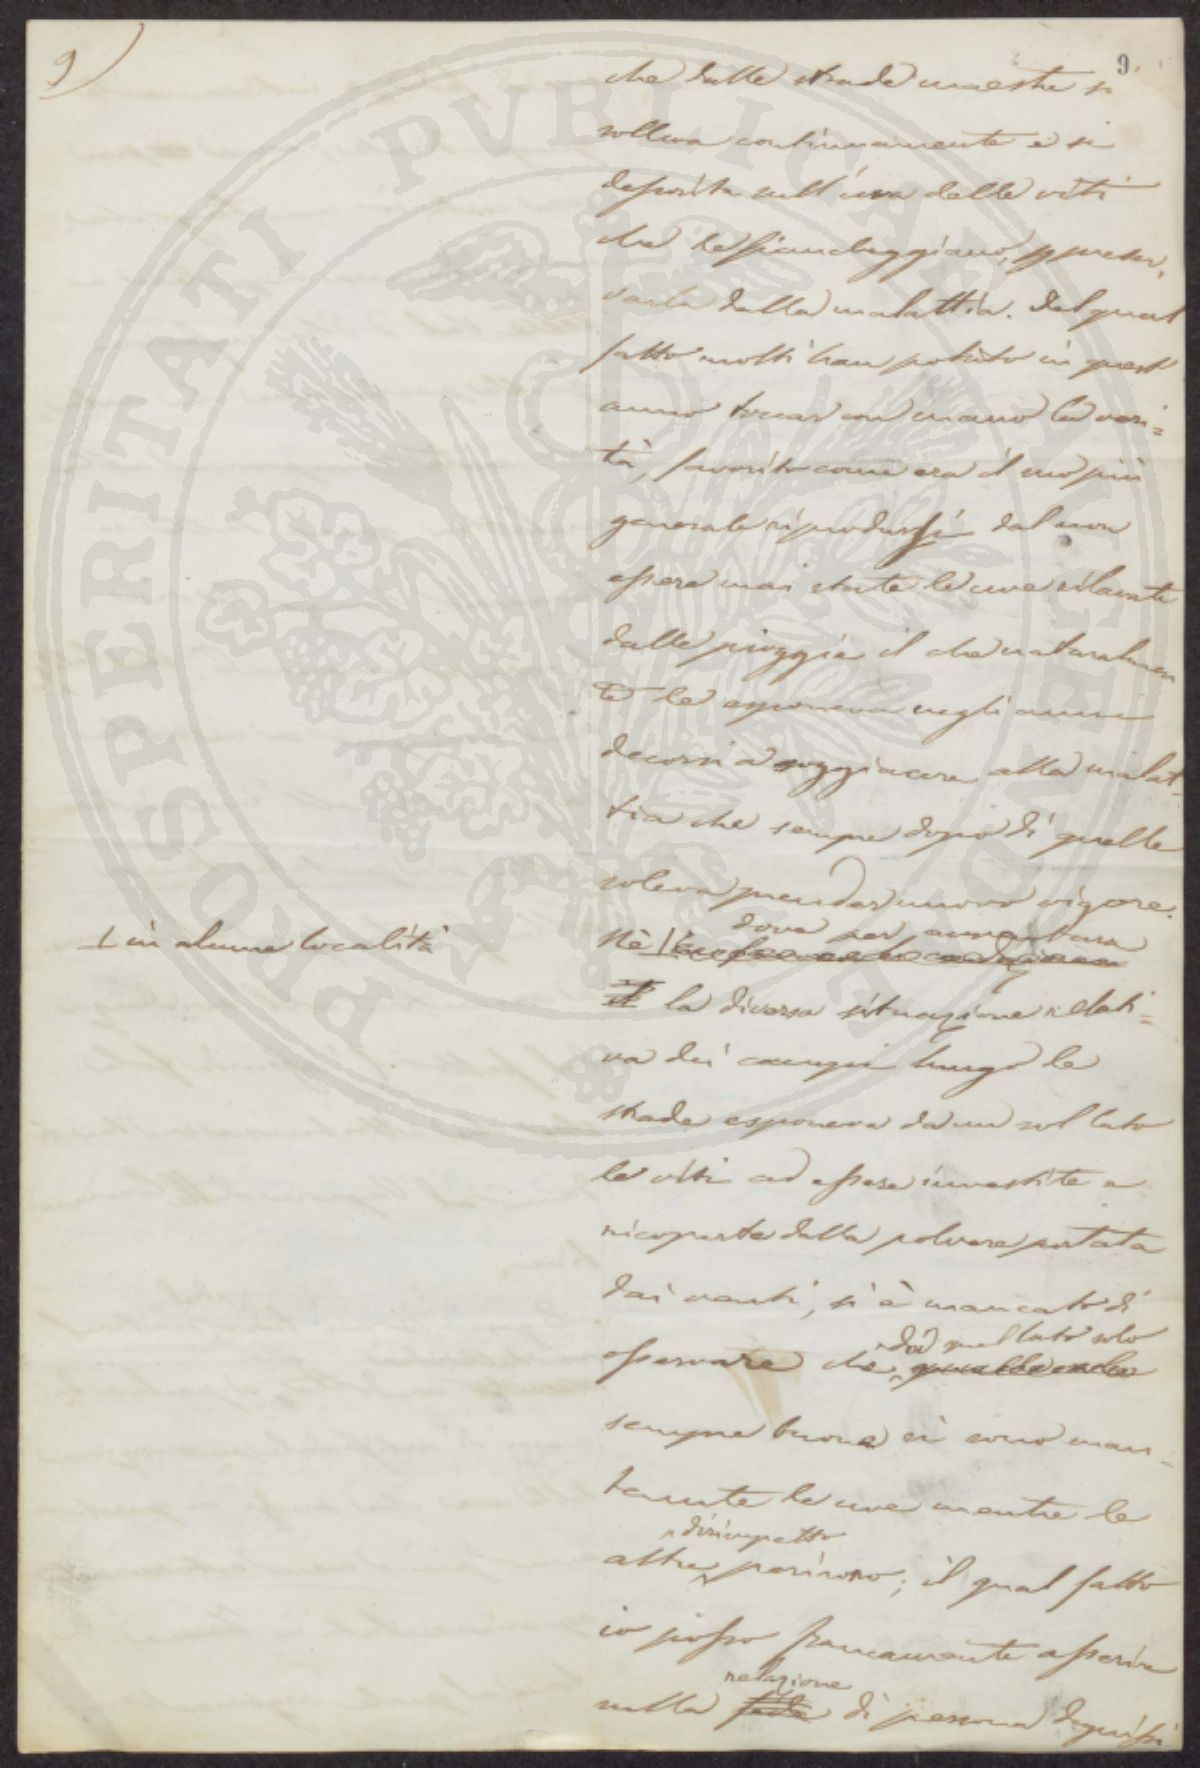 9)
9.
che dalle strade maestre si
solleva continuamente e si
deposita sull'uva delle viti
che le fiancheggiano, preser-
varla dalla malattia. Del qual
fatto molti han potuto in quest'
anno toccar con mano la veri=
tà, favorito come era il suo più
generale riprodursi dal non
essere mai state le uve dilavate
dalle pioggie il che naturalmen
te le esponeva negli anni
decorsi a soggiacere alla malat-
tia che sempre dopo di quelle
soleva prender nuovo vigore.
dove per avventura
Nè |
⊥ in alcune località
la diversa situazione relati=
va dei campi lungo le
strade esponeva da un sol lato
le viti ad essere investite e
ricoperte dalla polvere portata
dai venti, si è mancato di
da quel lato solo
osservare che quelle sole
sempre buone si sono man-
tenute le uve mentre le
dirimpetto
altre perirono; il qual fatto
io posso francamente asserire
relazione
sulla fede di persona degnissi
PROSPERITATI PUBLICAE AUGENDAE